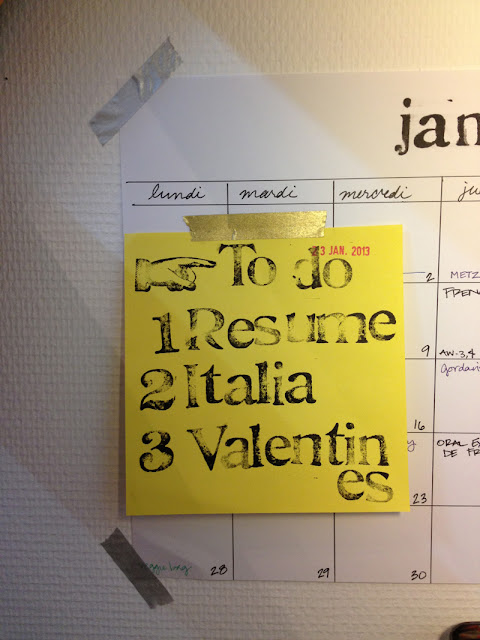 jan
lundi mardi mercredi
23 JAN. 2013
To do
1 Resume
2 Italia
3 Valentin
es
2 METZ
FREN
9 AW-3,4
16
ORAL E
DE FR
23
28 29 30